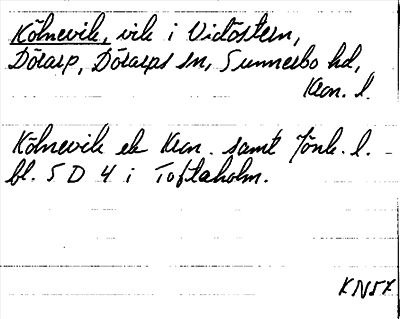 Kölnevik, vik i Vidöstern,
Dörarp, Dörarps sn, Sunnerbo hd,
Kron. l.
Kölnevik ek Kron. samt Jönk. l.
bl. 5 D 4 i Toftaholm.
KN57